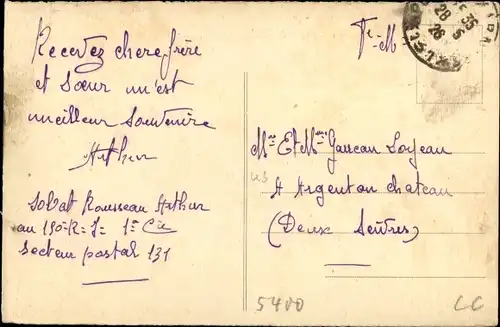 Recevez chere frère
et Sœur m'est
meilleur Souvenire
Arthur
Soldat Rousseau Arthur
au 190 R-I- 1e Cie
secteur postal 131
F-M-
Mr Et Mme Garreau Loyeau
A Argenton chateau
(Deux Sèvres)
5400
CC